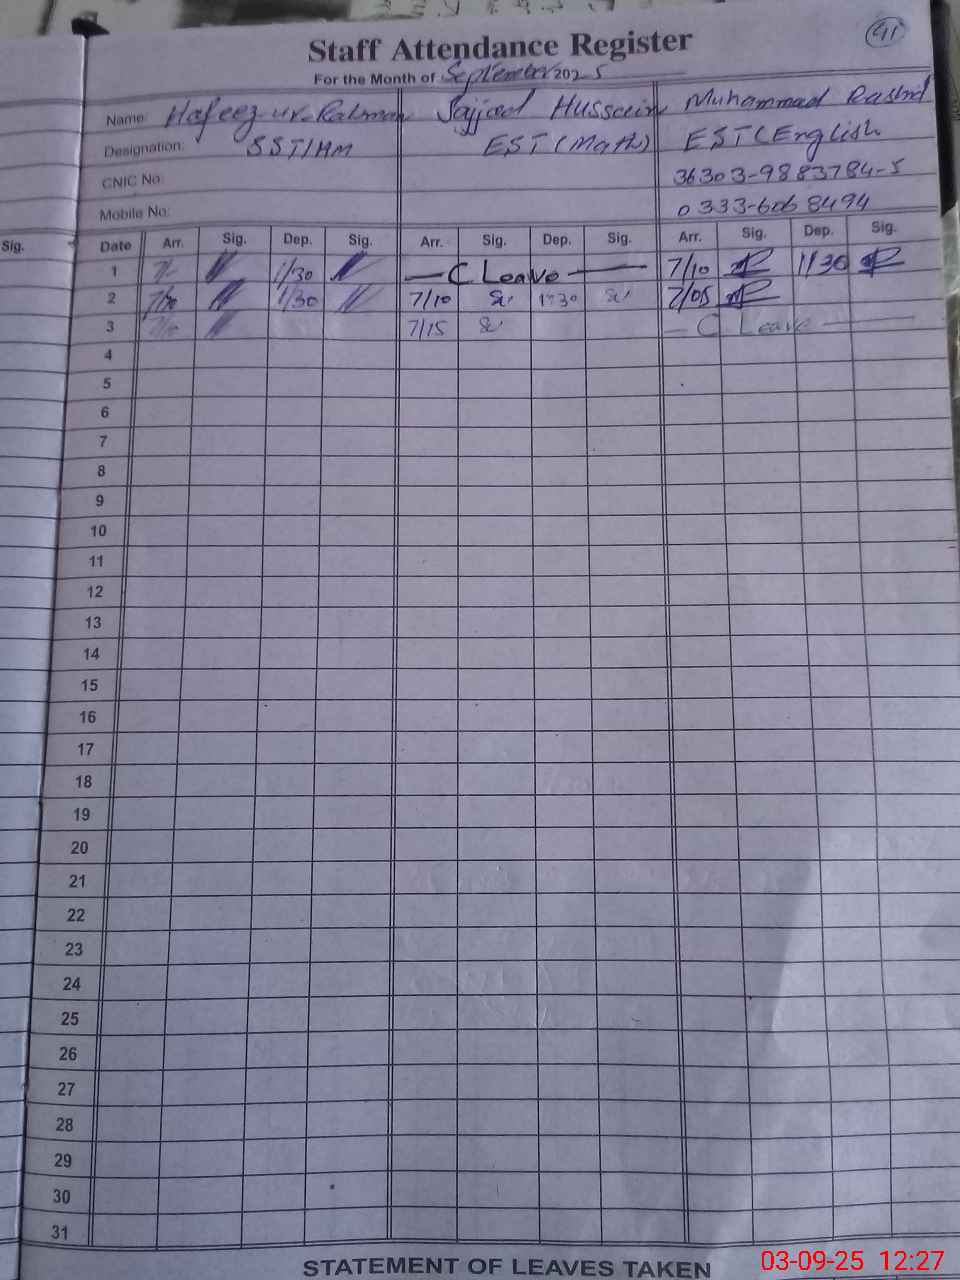 91
Staff Attendance Register
For the Month of September 2025
Name: Hafeez ur Rahman Sajjad Hussain Muhammad Rashid
Designation: SST/HM EST (Math) EST (English
CNIC No: 36303-9883784-5
Mobile No: 0333-6068494
Sig. Date Arr. Sig. Dep. Sig. Arr. Sig. Dep. Sig. Arr. Sig. Dep. Sig.
1 7/- 1/30 — C Leave — 7/10 1/30
2 1/30 7/10 1:30 7/05
3 7/15 — C Leave —
4
5
6
7
8
9
10
11
12
13
14
15
16
17
18
19
20
21
22
23
24
25
26
27
28
29
30
31
STATEMENT OF LEAVES TAKEN
03-09-25 12:27